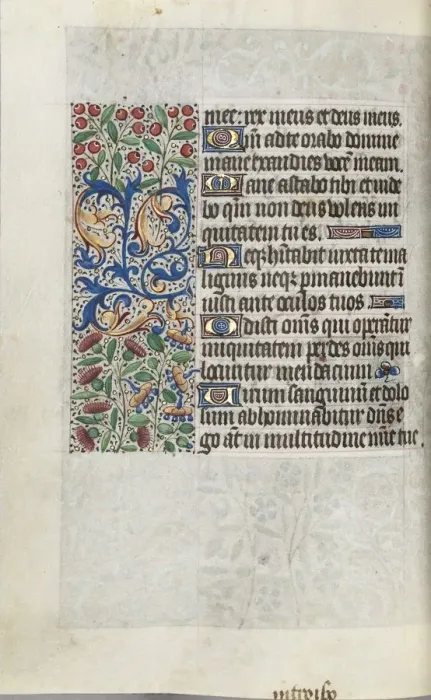 mee: rex meus et deus meus.
Qm̄ ad te orabo domine
mane exaudies vocē meam.
Mane astabo tibi et vide
bo qm̄ non deus volens ini
quitatem tu es.
Neqꝫ hītabit iuxta te ma
lignus neqꝫ pmanebunt ī
iusti ante oculos tuos.
Odisti om̄s qui operātur
iniquitatem perdes om̄s qui
locuntur mendacium
Uirum sanguinū et dolo
sum abhominabitur dn̄s e
go āt in multitudine mīe tue.
introibo